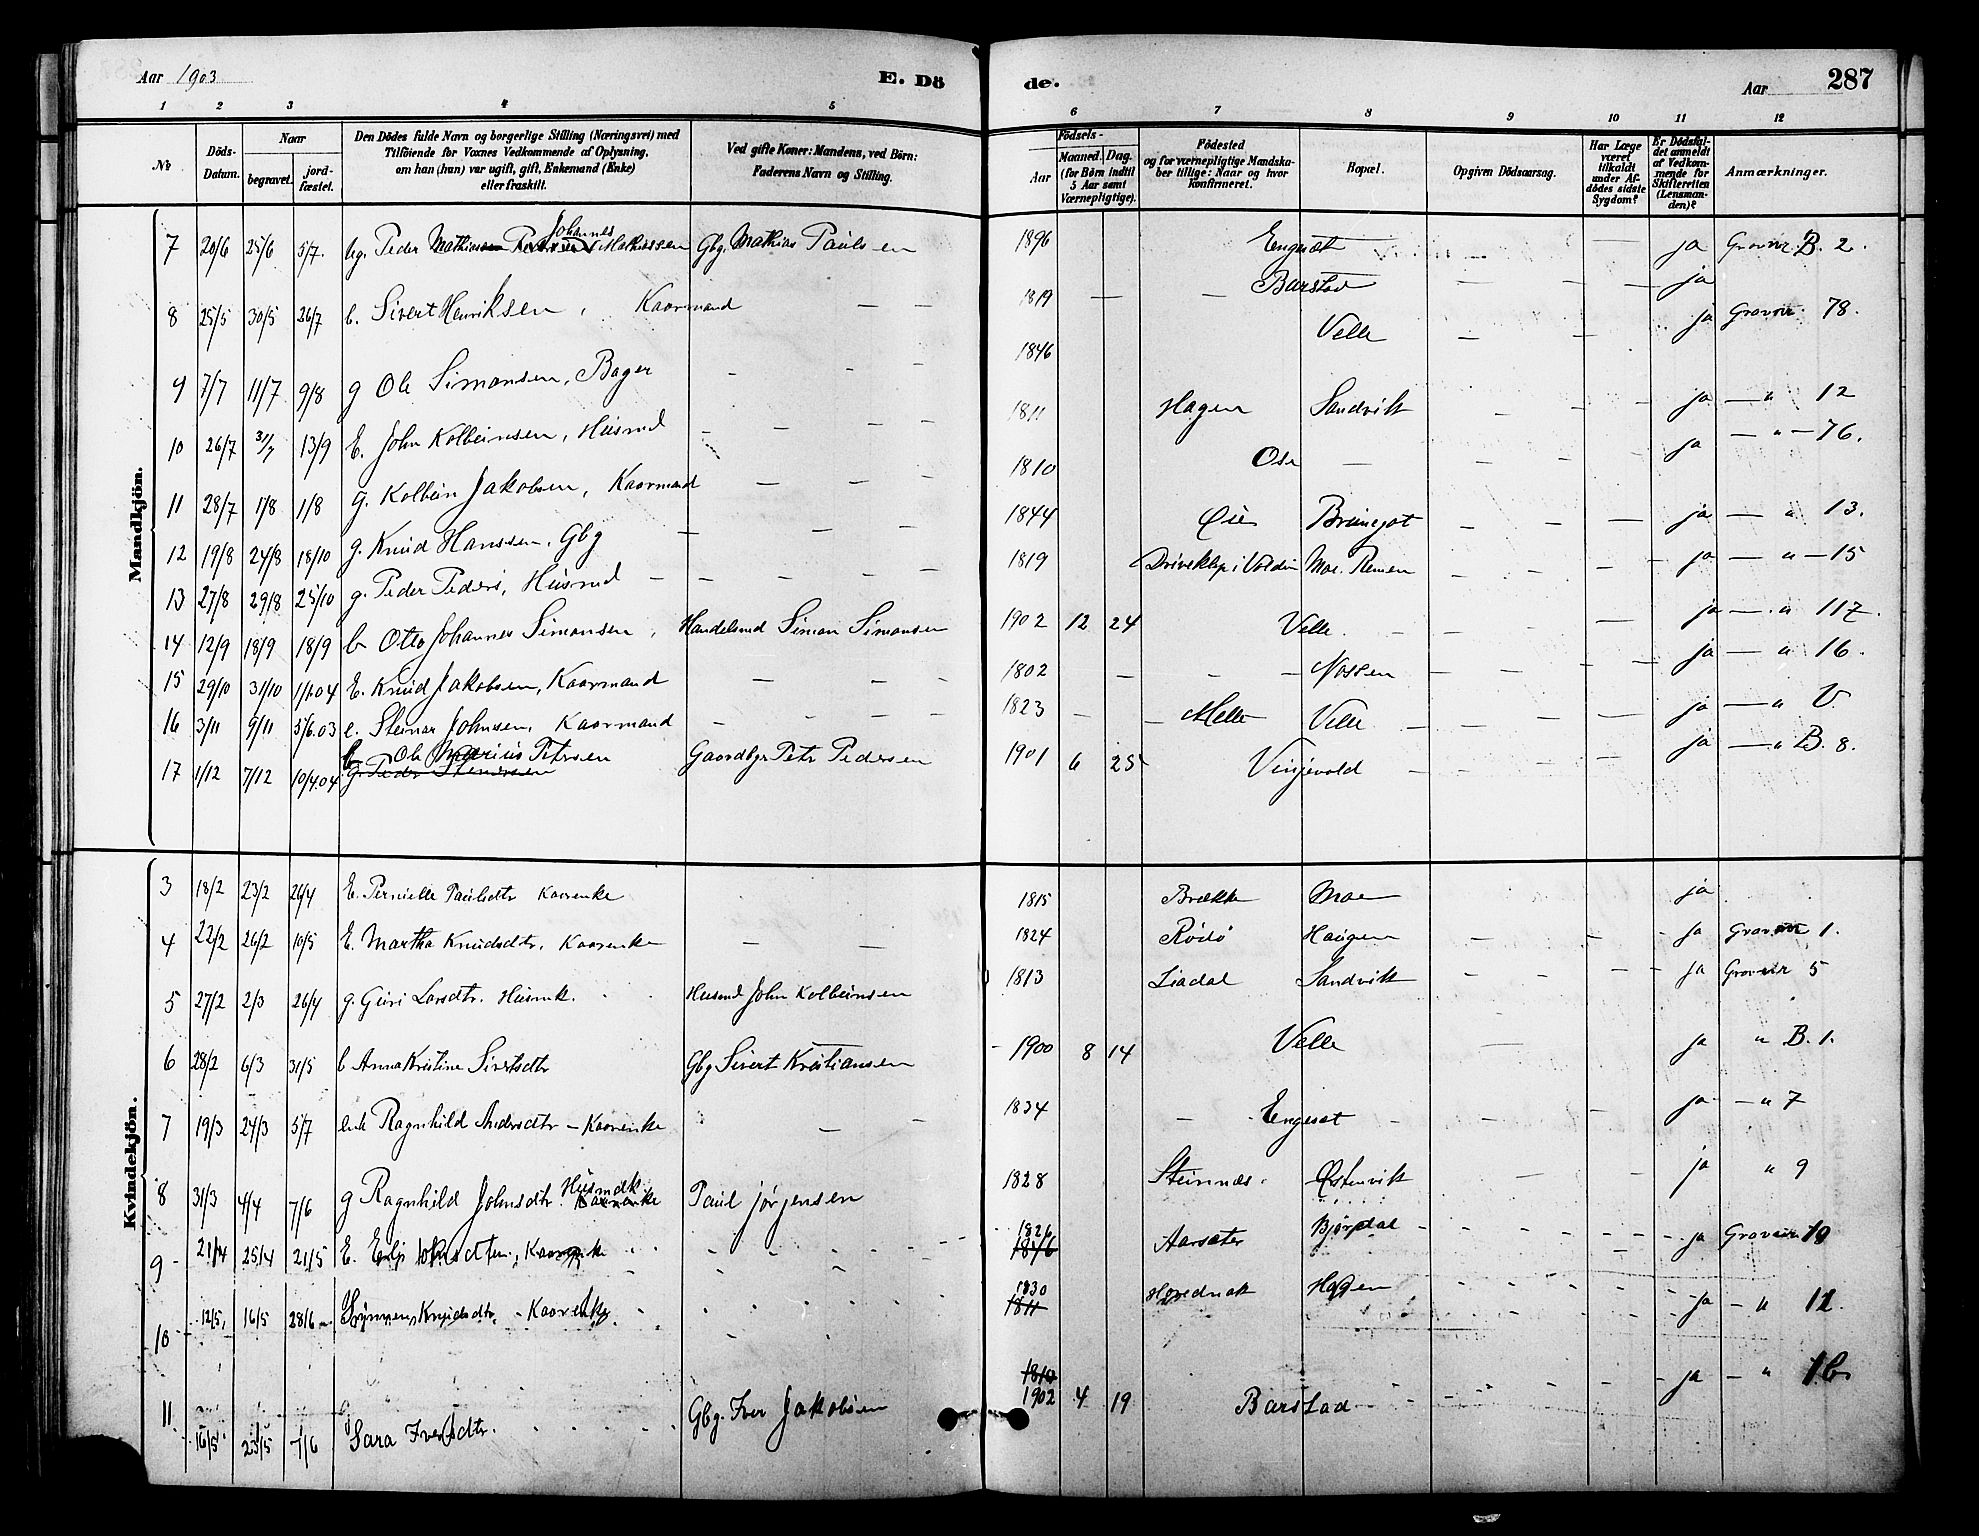 Aar 1903 E. Dö de. Aar 287
1 2 3 4 5 6 7 8 9 10 11 12
No Döds-Datum. Naar begravet. jordfæstet. Den Dödes fulde Navn og borgerlige Stilling (Næringsvei) med Tilföiende for Voxnes Vedkommende af Oplysning, om han (hun) var ugift, gift, Enkemand (Enke) eller fraskilt. Ved gifte Koner: Mandens, ved Börn: Faderens Navn og Stilling. Födsels- Aar Maaned. Dag. (for Börn indtil 5 Aar samt Værnepligtige). Födested og for værnepligtige Mandskaber tillige: Naar og hvor konfirmeret. Bopæl. Opgiven Dödsaarsag. Har Læge været tilkaldt under Afdödes sidste Sygdom? Er Dödsfaldet anmeldt af Vedkommende for Skifteretten (Lensmanden)? Anmærkninger.
Mandkjön.
7 20/6 25/6 5/7. ug. Peder Johannes Mathiassen Gbg. Mathias Paulsen 1896 Engeset ja Gravnr. B. 2.
8 25/5 30/5 26/7 b. Sivert Henriksen, Kaarmand 1819 — — Barstad — — — ja
9 7/7 11/7 9/8 g Ole Simonsen, Bager — — — 1846 Velle — — ja Gravnr. 78.
10 26/7 31/7 13/9 E. John Kolbeinsen, Husmd — — — — 1811 Hagen Sandvik — — — ja — " 12
11 28/7 1/8 1/8 g. Kolbein Jakobsen, Kaarmand — — — 1810 Ose — — — — ja — " — 76.
12 19/8 24/8 18/10 g. Knud Hanssen, Gbg — — — 1844 Øie Brunejot — — — ja — " 13.
13 27/8 29/8 25/10 g. Peder Peders, Husmd — — — — — 1819 Driveklep i Volden Moe. Remen — — — — ja — " — 15
14 12/9 18/9 18/9 b Otto Johannes Simonsen, Handelsmd Simon Simonsen 1902 12 24 Velle. — — — — ja — " 117.
15 29/10 31/10 1/1.04 E. Knud Jakobsen, Kaarmand — — — 1802 — — — Nossen — — — — ja — " 16.
16 3/11 9/11 5/6.03 e. Steinar Johnsen, Kaarmand — — — — 1823 — — Melle Velle — — — ja — " V
17 1/12 7/12 10/4.04 b Ole Marius Petersen Gaardbgr Petr Pedersen 1901 6 25 Vinjevold — — — — ja — " B. 8.
g. Peder Stenersen
Kvindekjön.
3 18/2 23/2 26/4 E. Pernielle Paulsdtr Kaarenke 1815 Brække Moe ja
4 22/2 26/2 10/5 E. Martha Knudsdtr, Kaarenke — — 1824 Rödö Haugen — — — ja Gravnr 1.
5 27/2 2/3 26/4 g. Guri Larsdtr. Husmk. Husmd John Kolbeinsen 1813 Liadal Sandvik — — — — ja Gravnr 5
6 28/2 6/3 31/5 b Anna Kristine Sivertsdtr Gbg Sivert Kristiansen 1900 8 14 Velle — ja " B. 1.
7 19/3 24/3 5/7 enk Ragnhild Andersdtr — Kaarenke — — 1834 — Engeset — — — ja — " 7
8 31/3 4/4 7/6 g Ragnhild Johnsdtr. Husmdk. Kaarenke Paul Jørgensen 1828 Steinnes. Østenvik — — ja " 9
9 21/4 25/4 21/5 E. Kaarenke 1826 1876 Aarsæter Bjørdal — — — — ja Gravnr 10
10 12/5 16/5 28/6 Knudsdtr. — Kaarenke 1830 1811 Hovednak Hagen ja — " 12.
11 16/5 23/5 7/6 Sara Iversdtr. Gbg. Iver Jakobsen 1810 1902 4 19 Barstad — — — ja — "